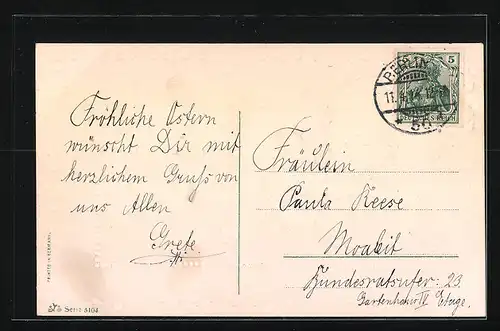 Fröhliche Ostern
wünscht Dir mit
herzlichem Gruss von
uns Allen
Grete
BERLIN
11.4.
5
Fräulein
Paula Reese
Moabit
Bundesratsufer 23
Gartenhaus IV Etage.
PRINTED IN GERMANY
Serie 5164